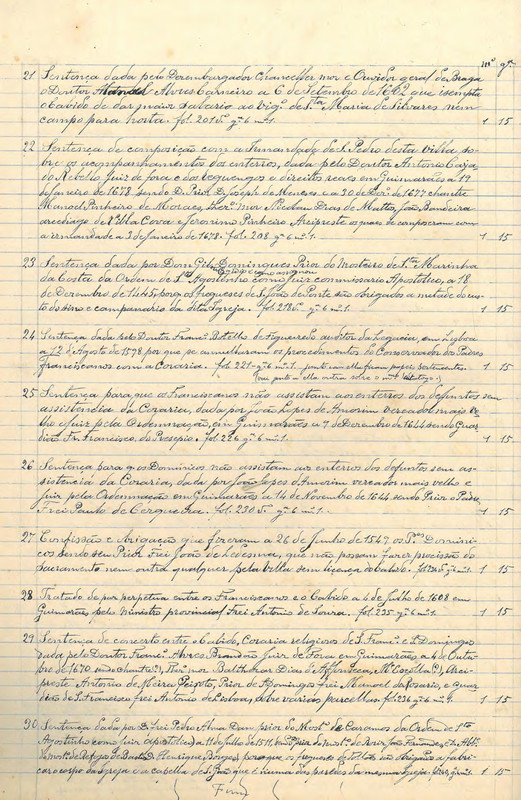 mº gª
21 Sentença dada pelo Dezembargador Chanceller mor e Ouvidor geral de Braga
o Doutor Manoel Alves Carneiro a 6 de Setembro de 1662 que isempta
o Cabido de dar maior salario ao vigº de S.ta Maria de Silvares nem
campo para horta. fol. 201 5ª gª 6 mº 1. 1 15
22 Sentença de composição com a Irmandade de S. Pedro desta villa so-
bre os acompanhamentos dos enterros, dada pelo Doutor Antonio
do Rebello Juiz de fora e dos reguengos e direitos reaes em Guimarães a 19
de Janeiro de 1678 sendo D. Prior D. Joseph de Menezes. e a 30 de Dezº de 1677 chantre
Manoel Pinheiro de Moraes, thezº mor Nicolau Dias de Mattos, João Bandeira
arcediago de Villa Cova e Jeronimo Pinheiro Arcipreste os quaes se compozeram com
a irmandade a 3 de Janeiro de 1678. fol. 208. gª 6 mº 1. 1 15
23 Sentença dada por Dom Gil Domingues Prior do Mosteiro de S.ta Marinha
da Costa da Ordem de S.to Agostinho como juiz commissario Apostolico, a 18
de Dezembro de 1445, porq os freguezes de S. João de Ponte são obrigados a metade do cus-
to do sino e campanario da dita Igreja. fol. 218 gª 6 mº 1. 1 15
24 Sentença dada pelo Doutor Franº Botelho de Figueredo auditor da Legacia, em Lisboa
a 12 d'Agosto de 1598 por que se anullaram os procedimentos do Conservador dos Padres
Franciscanos com a Coraria. fol. 221. gª 6 mº 1. junto a ella foram papeis pertencentes. 1 15
25 Sentença para que os Franciscanos não assistam aos enterros dos defuntos sem
assistencia da Coraria, dada por João Lopes de Amorim vereador mais ve-
lho e juiz pela Ordemnação, em Guimarães a 7 de Dezembro de 1644 sendo Guar
dião Fr. Francisco do Rosepio. fol. 226 gª 6 mº 1. 1 15
26 Sentença para q os Dominicos não assistam aos enterros dos defuntos sem as-
sistencia da Coraria, dada por João Lopes d'Amorim vereador mais velho e
juiz pela Ordemnação em Guimarães a 14 de Novembro de 1644 sendo Prior o Padre
Frei Paulo de Cerqueira. fol. 230 5. gª 6 mº 1. 1 15
27 Confissão e obrigação que fizeram a 26 de Junho de 1547 os P.es Domini-
cos sendo seu Prior Frei João de Ledesma, que não possam fazer procissão do
Sacramento nem outra qualquer pela villa sem licença do Cabido. gª 6 mº 1. 1 15
28 Tratado de paz perpetua entre os Franciscanos e o Cabido a 4 de Julho de 1608 em
Guimarães, pelo Ministro provincial Frei Antonio de Souza. fol. 235 gª 6 mº 1. 1 15
29 Sentença de concerto entre o Cabido, Coraria religiosos de S. Franº e S. Domingos
dada pelo Doutor Franº Alvres Brandão Juiz de Fora em Guimarães, a 4 de Outu-
bro de 1670 sendo chantre, Thezº mor Balthazar Dias d'Affonseca, Arci-
preste Antonio de Meira Peixoto, Prior de S. Domingos Frei Manoel do Rosario, e Guar
dião de S. Francisco frei Antonio de Lisboa, sobre varias parcellas. fol. 236 gª 6 mº 1. 1 15
30 Sentença dada por D. frei Pedro prior do Mostº de Caramos da Ordem de S.to
Agostinho como juiz apostolico, a 11 de Julho de 1511,
Henrique Borges, porque os freguezes de são obrigados a fabri-
car o corpo da Igreja e a capella de S. João que é numa das paredes da mesma Igreja. gª 6 mº 1. 1 15
( Fim )